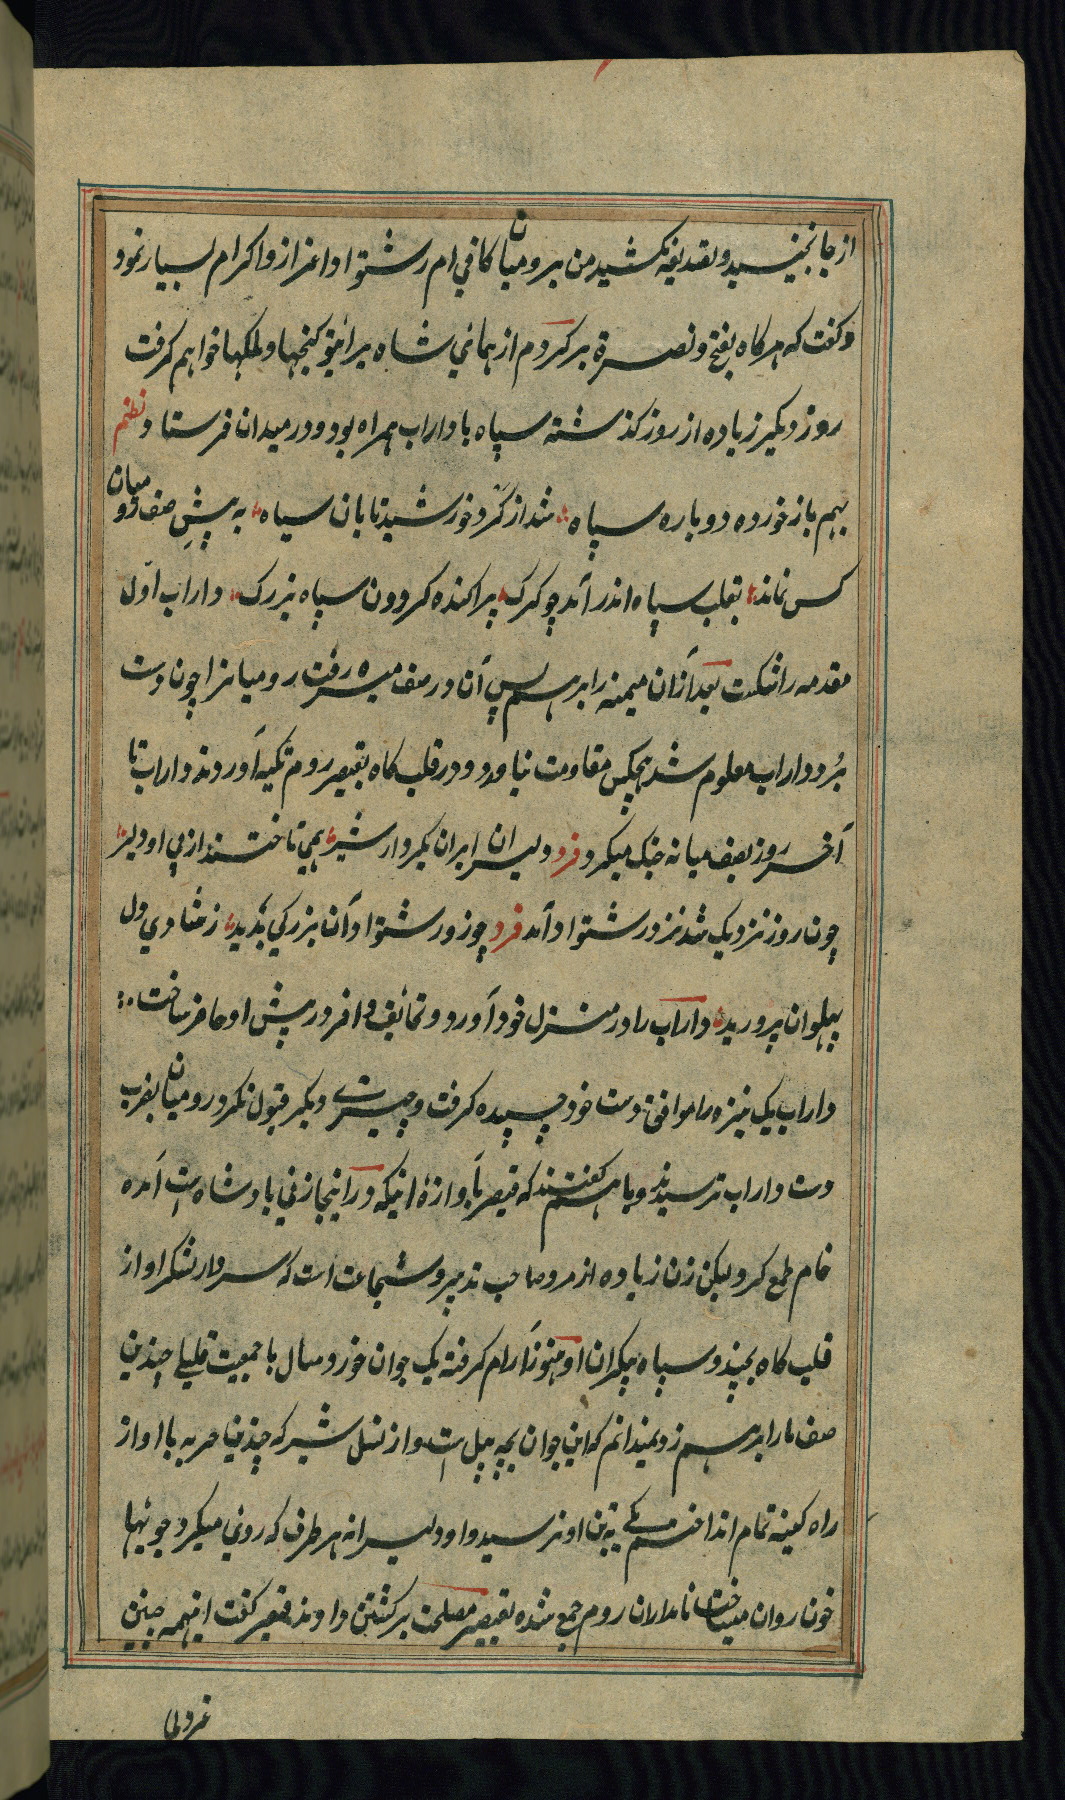 از جا نجنبید و تصدیعه نکشید من برومیان کافی ام رشتواد اعزاز و اکرام بسیار نمود
و گفت که هر گاه بفتح و نصرة برگردم از همائی شاه برائیتو گنجها و ملکها خواهم گرفت
روز دیگر زیاده از روز گذشته سپاه با داراب همراه بود و در میدان فرستاد نظم
بهم باز خورده دو باره سپاه شد از گرد خورشید تابان سیاه به پیش صف رومیان
کس نماند بقلب سپاه اندر آمد چو گرگ پراکنده کرد ون سپاه بزرگ داراب اوّل
مقدمه را شکست بعد ازان میمنه را برهم پس آن در صف میسره رفت رومیانرا چون دست
بُرد داراب معلوم شد هیچکس مقاومت نیاورد و در قلب گاه بقیصر روم تکیه آوردند داراب تا
آخر روز بصف میانه جنگ میکرد فرد دلیران ایران بکردار شیر همی تاختند از پی او دلیر
چون روز نزدیک شد نزد رشتواد آمد فرد چو زو رشتواد آن بزرگی بدید ز شادی دل
پهلوان پرورید داراب را در منزل خود آورد و تحائف وافر در پیش او حاضر ساخت
داراب یک نیزه را موافق دست خود چسپیده گرفت و چیزے دیگر قبول نکرد رومیان بضرب
دست داراب ترسیدند و با هم گفتند که قیصر بآوازهٔ اینکه در اینجا زنی بادشاه است آمده
خام طمع کرد لیکن زن زیاده از مرد صاحب تدبیر و شجاعت است که سردار لشکر او از
قلب گاه بجنبد و سپاه بیکران او هنوز آرام گرفته یک جوان خورد سال با جمعیت قلیلے چندین
صف ما را برهم زد نمیدانم که این جوان بچه پیل است و از نسل شیر که چندین حربه با او از
راه کینه تمام انداختم یکے به تن او نرسید و او دلیرانه هر طرف که روئی میکرد جویها
خون روان میساخت نامداران روم جمع شده بقیصر مصلحت برگشتن دادند قیصر گفت اینهمه چنین